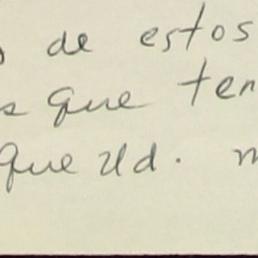 de estos
que ten
que Ud. m